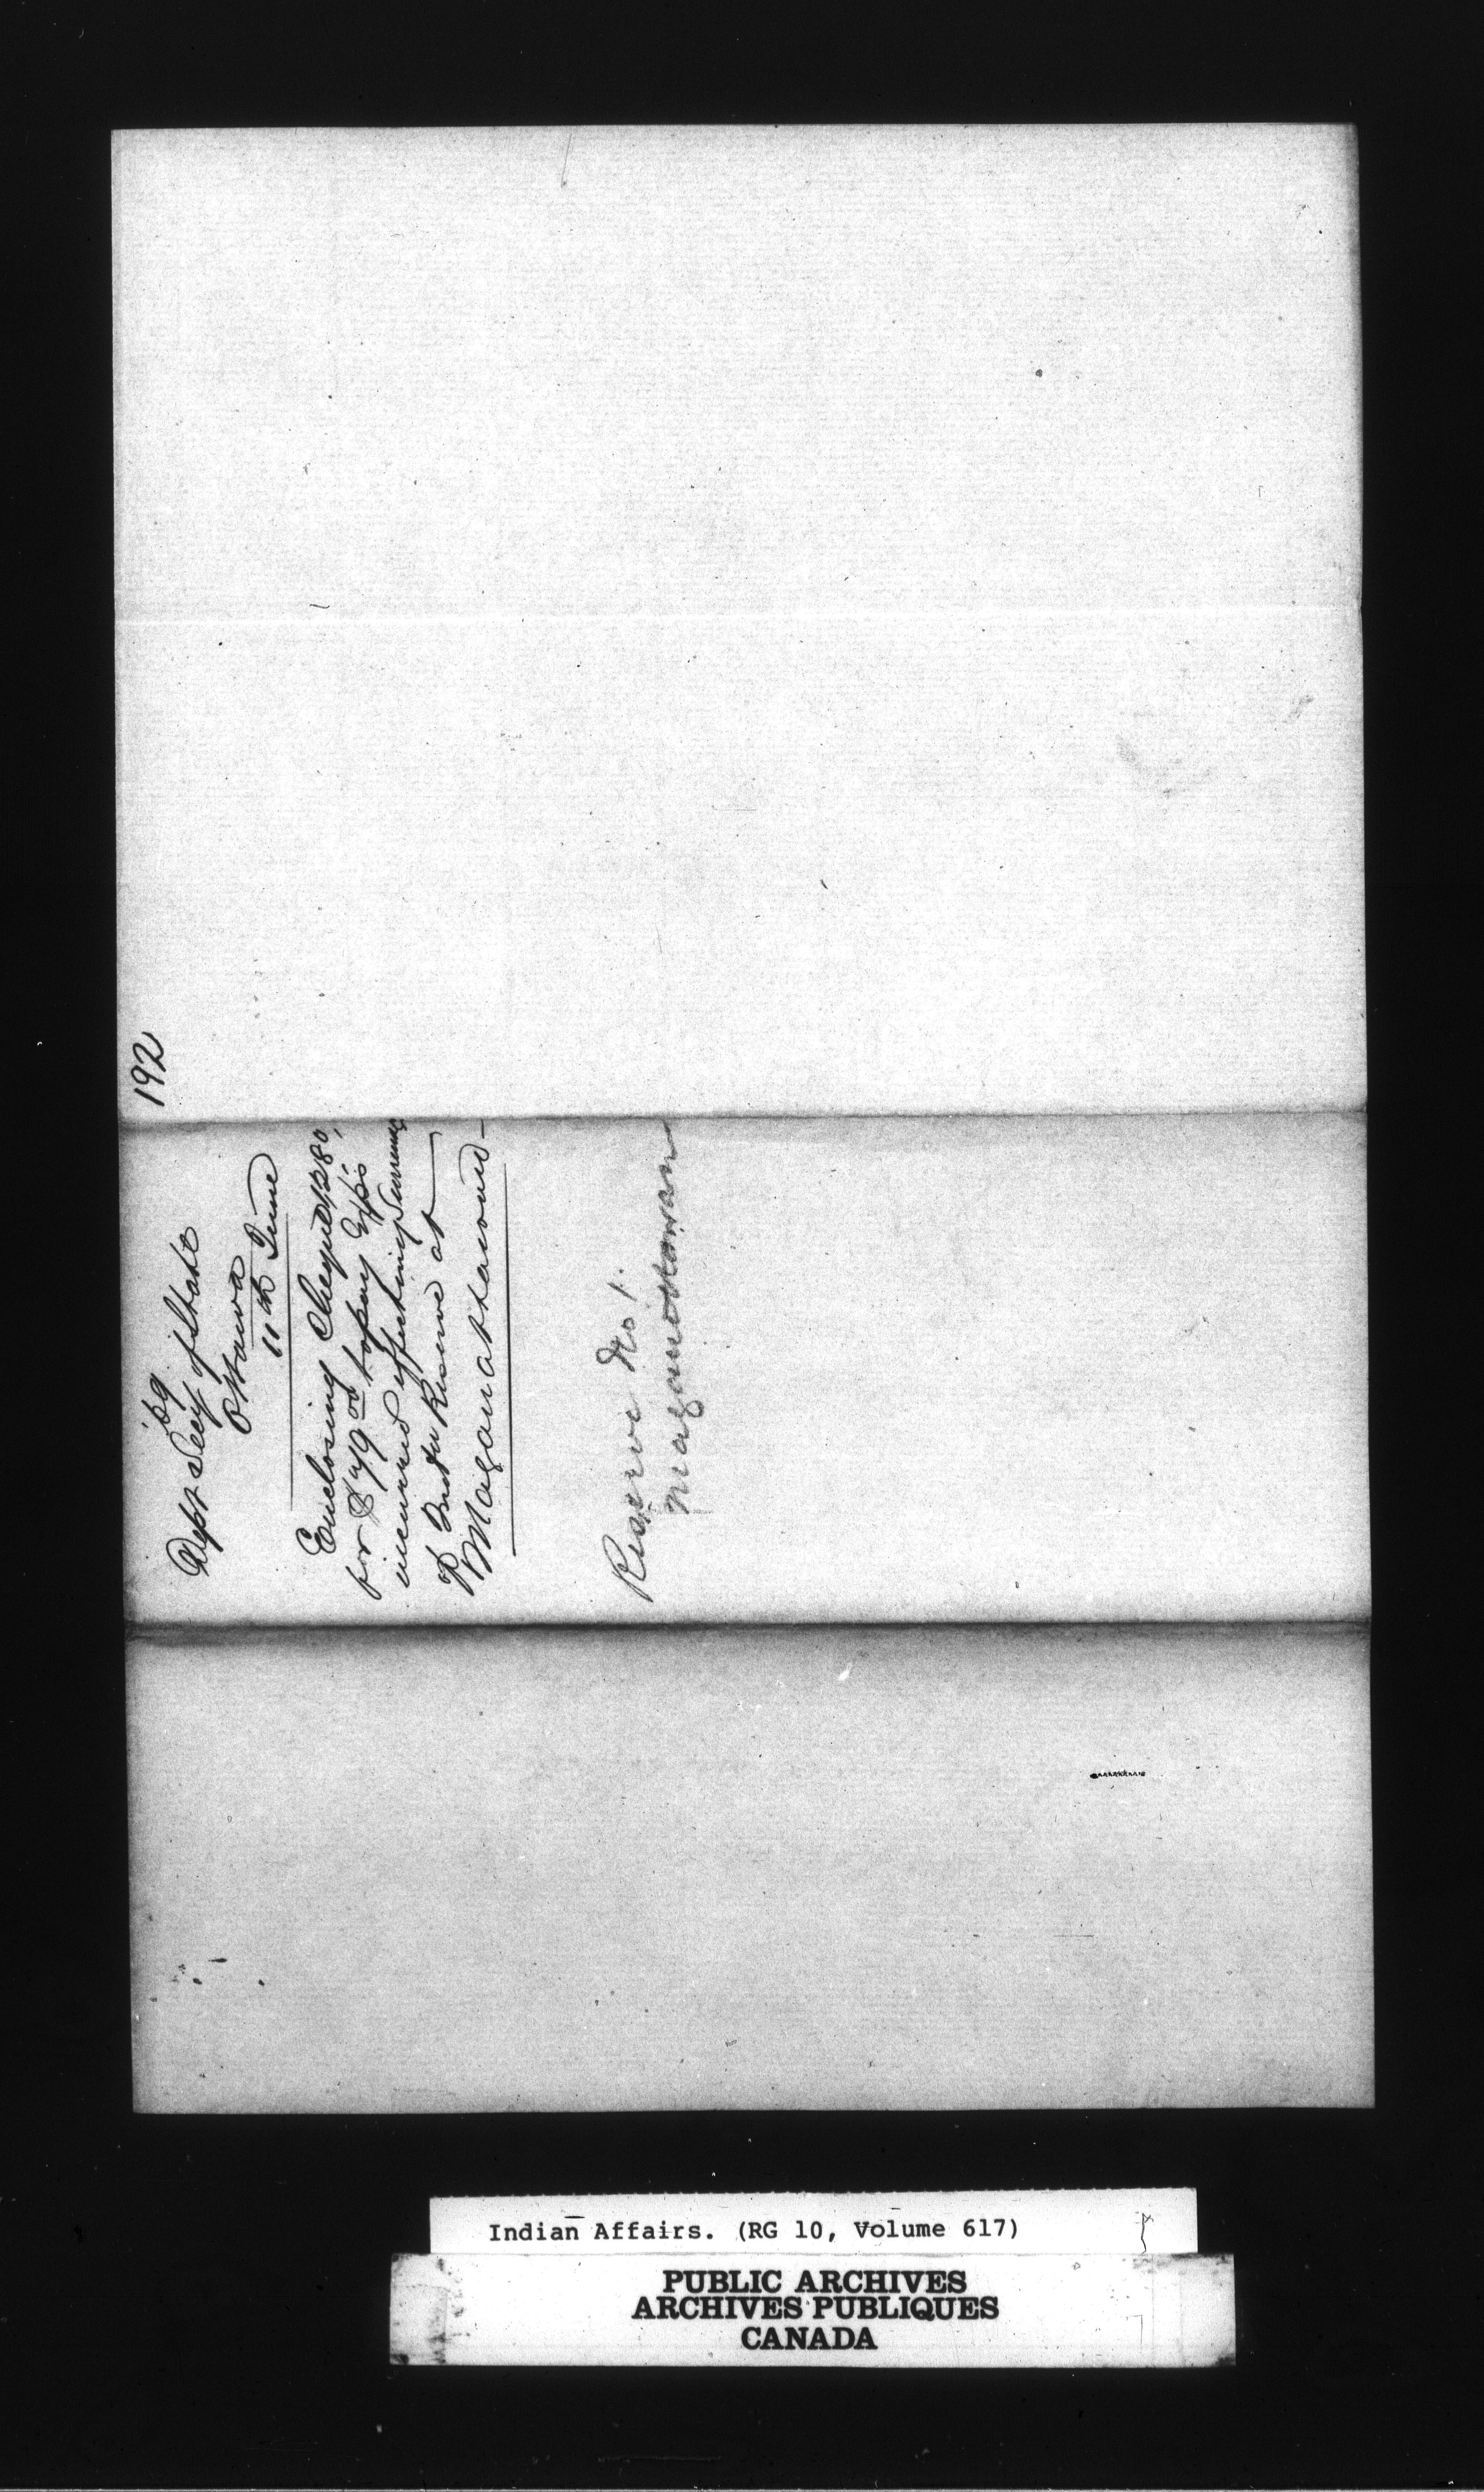 192
'69
Dept Secy of State
Ottawa
11th June
Enclosing Cheque 1280,
for $79.00 to pay Exps
incurred effecting Survey
of Indn Reserve at
Maganattawa
Reserve No 1.
Maganattawan
Indian Affairs. (RG 10, Volume 617)
PUBLIC ARCHIVES
ARCHIVES PUBLIQUES
CANADA